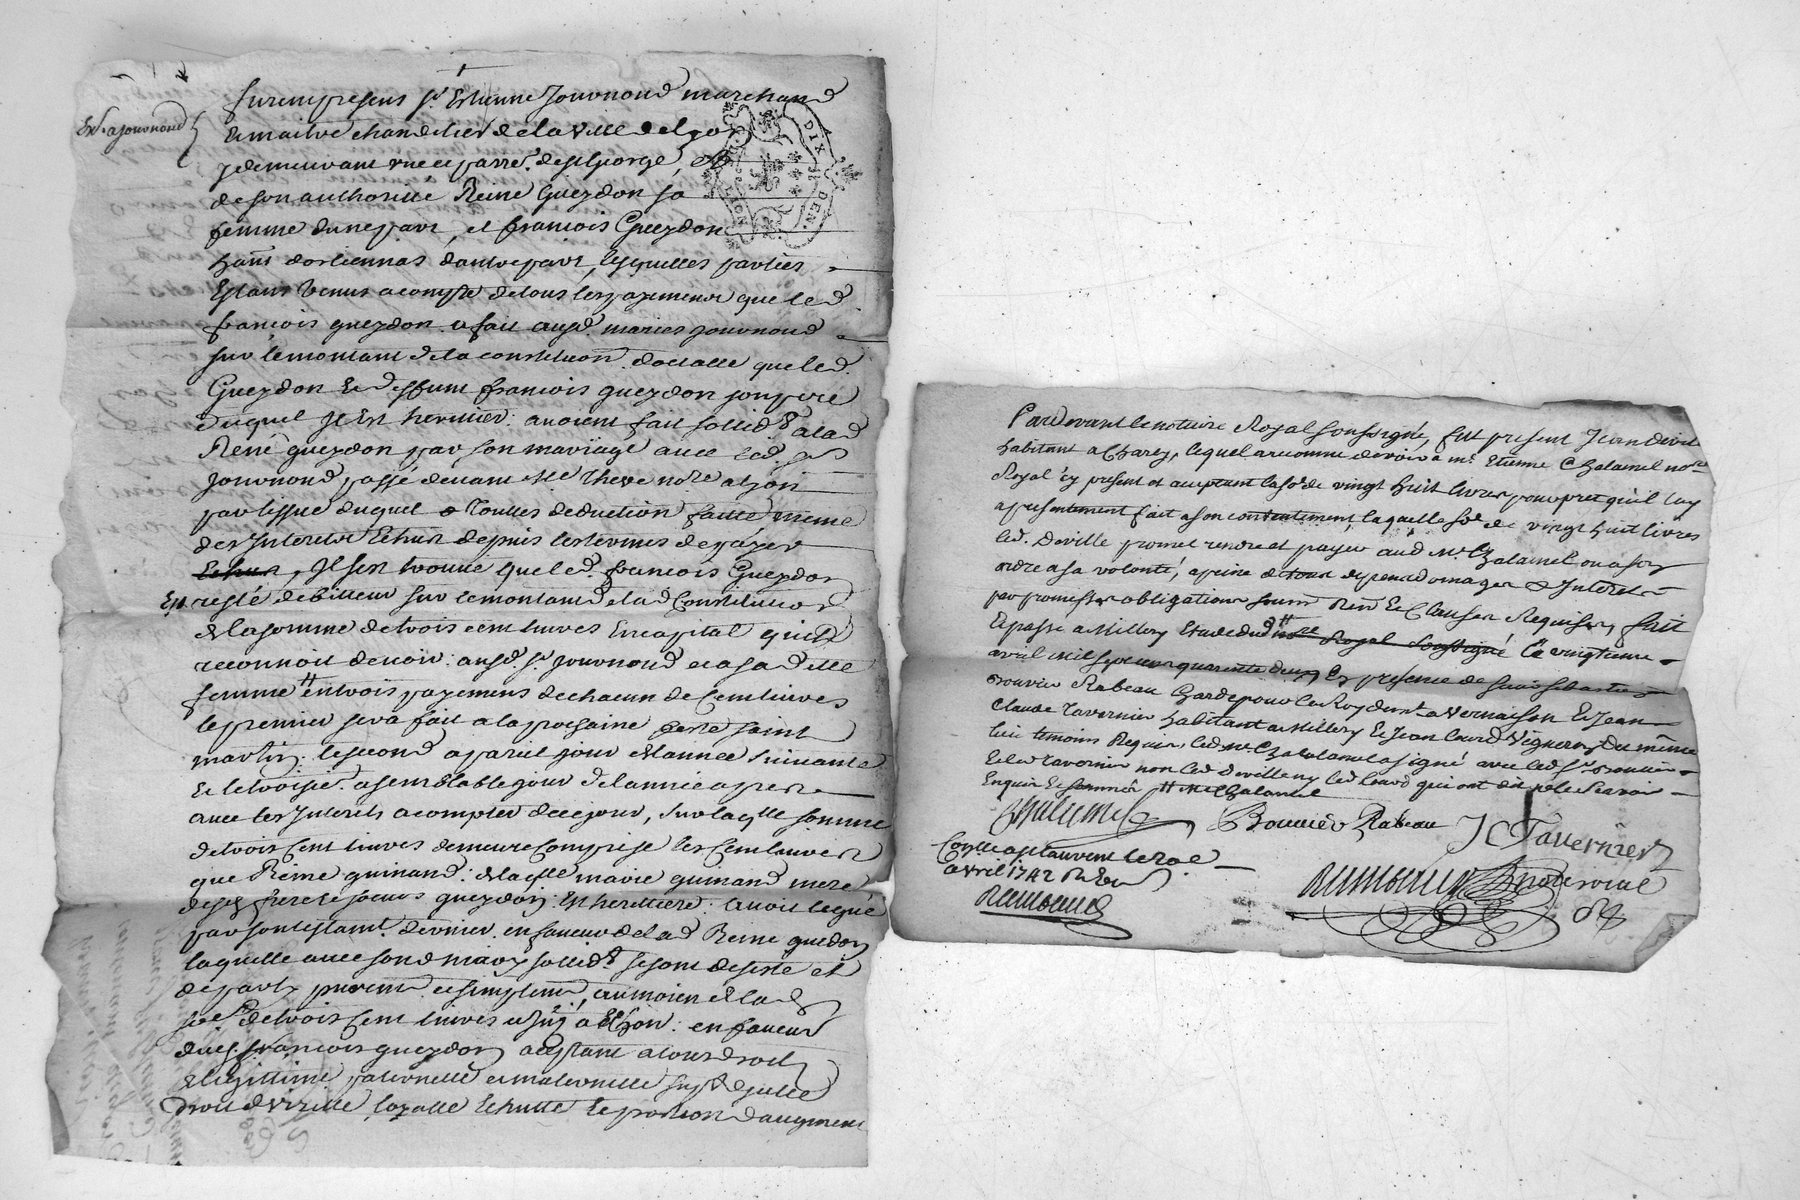 Exp. a Jouvnond
furent presens Sr. Estienne Jouvnond marchand
& maitre chandelier de la ville de Lyon
y demeurant rue et parre. de St George, &
de son authorité Reine Gueydon sa
femme d'une part, et françois Gueydon
habit. d'orliennas d'autre part, lesquelles parties
Estant venus a compte de tous les payements que led.
françois gueydon a fait ausd. mariés Jouvnond
sur le montant de la constitution dotalle que led.
Gueydon & deffunt françois gueydon son pere
duquel Il est heritier: avoient fait sollid. a lad.
Reine gueydon par son mariage avec led. Sr
Jouvnond, passé devant Me Theve nore a Lyon
par l'issue duquel & touttes deduction faitte meme
des Interets Echus depuis les termes de payer
Echus, Il s'en trouve que led. françois Gueydon
Est resté debiteur sur le montant de lad. Constitution
de la somme de trois cent livres En capital qu'il
reconnoit devoir: ausd. Sr. Jouvnond et a sad. dlle
femme # en trois payemens de chacun de Cent livres
le premier sera fait a la prochaine feste saint
martin: le second a pareil jour de l'année suivante
Et le troisie. a semblable jour de l'année apres
avec les Interets a compter de ce jour, sur laqlle somme
de trois cent livres demeure Comprise les Cent livres
que Reine guinand: & laqlle marie guinand mere
desd. frere et soeurs gueydon: Est heritiere: avoit legué
par son testamt. dernier en faveur de lad. Reine guedon
laquelle avec sond. mary sollid. se sont desisté et
départy purement et simplemt., au moien de lad.
soe. de trois Cent livres en faveur
dud. françois gueydon acceptant a tous droits
de legittime paternelle et maternelle supt. d'icelle
droit de virille, loyalle Echutte & portion d'augment
DIX DEN.
LION
Pardevant le notaire Royal soussigné, fut present Jean devile
habitant a Charly, lequel a reconnu devoir a mr. Etienne Chalamel nore
Royal icy present et acceptant la soe. de vingt huit livres pour pret qu'il luy
a presentement fait a son contentement, laquelle soe. de vingt huit livres
led. Deville promet rendre et payer aud. Mr Chalamel ou a son
ordre a sa volonté, a peine de tous depens domages & Interets
par promesses obligations soumn. Ren. & Clauses Requises, fait
& passé a Millery Etude dud. # nore Royal soussigné le vingtieme
avril mil sept cent quarante deux En presence de Sieur sebastien
Bouvier Rabeau Garde pour le Roy demt. a Vernaison & Jean
Claude Tavernier habitant a Millery & Jean Liard Vigneron du même
lieu temoins Requis, led. Mr Chalamel a signé avec led. Sr Bouvier
& led. Tavernier non led. Deville ny led. Liard qui ont dit ne le scavoir
Enquis & sommés # Mr Chalamel
Chalamel
Bouvier Rabeau
JC Tavernier
Collé a St Laurent le
avril 1742